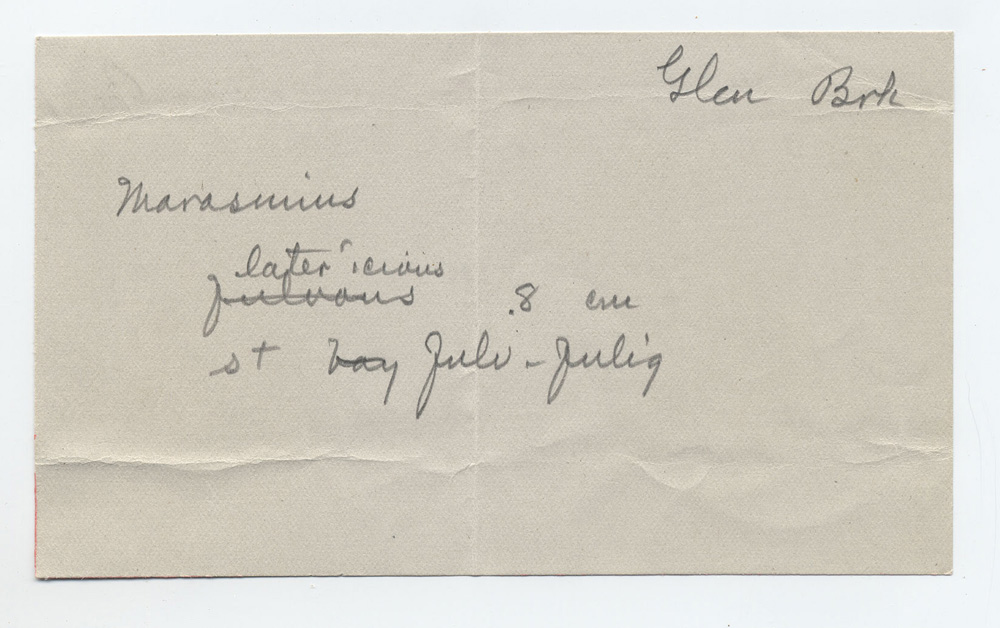 Glen Brk
Marasmius
latericious
fulvous .8 cm
st bay fulv - fulig